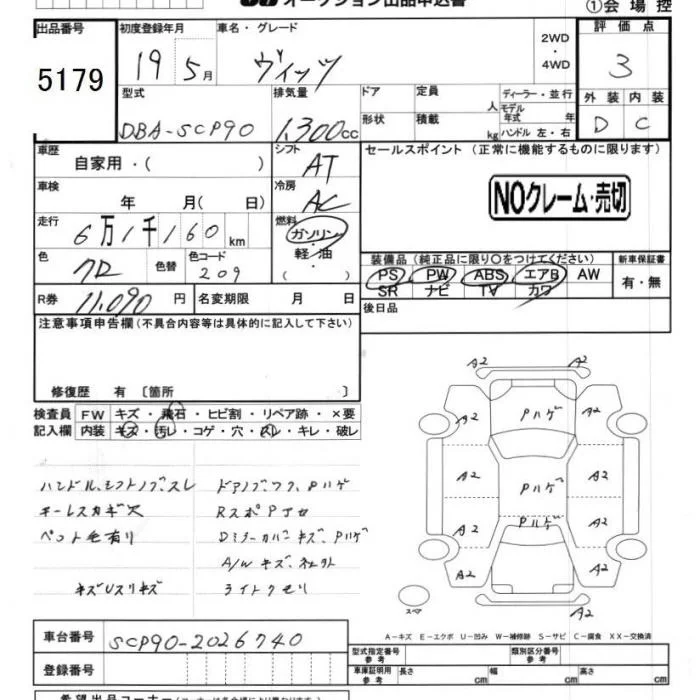 オークション出品申込書
①会場控
出品番号 初度登録年月 車名・グレード 評価点
5179 19年5月 ヴィッツ 2WD・4WD 3
型式 排気量 ドア 定員 人 ディーラー・並行 外装 内装
モデル年式 年
DBA-SCP90 1,300cc 形状 積載 kg ハンドル 左・右 D C
車歴 自家用・( ) シフト AT セールスポイント (正常に機能するものに限ります)
車検 年 月(日) 冷房 AC NOクレーム・売切
走行 6万1千160km 燃料 ガソリン・軽・油・( )
色 クロ 色替 色コード 209
装備品 (純正品に限り〇をつけてください) 新車保証書
PS PW ABS エアB AW 有・無
SR ナビ TV カワ
R券 11,090円 名変期限 月 日 後日品
注意事項申告欄 (不具合内容等は具体的に記入して下さい)
修復歴 有 〔箇所 〕
検査員 FW キズ・飛石・ヒビ割・リペア跡・×要
記入欄 内装 キズ・汚レ・コゲ・穴・スレ・キレ・破レ
ハンドル、シフトノブ、スレ
キーレスカギ穴
ペット毛有り
キズUスリキズ
ドアノブ、フク、Pハゲ
Dミラーカバーキズ、Pハゲ
ライトクモリ
A2 A2
A2 Pハゲ A2
A2 Pハゲ A2
A2 Pハゲ A2
A2 A2
スペア A2
A-キズ E-エクボ U-凹み W-補修跡 S-サビ C-腐食 XX-交換済
車台番号 SCP90-2026740
登録番号
型式指定番号 参考 類別区分番号 参考
車庫証明用 参考 長さ cm 幅 cm 高さ cm
希望出品コーナー